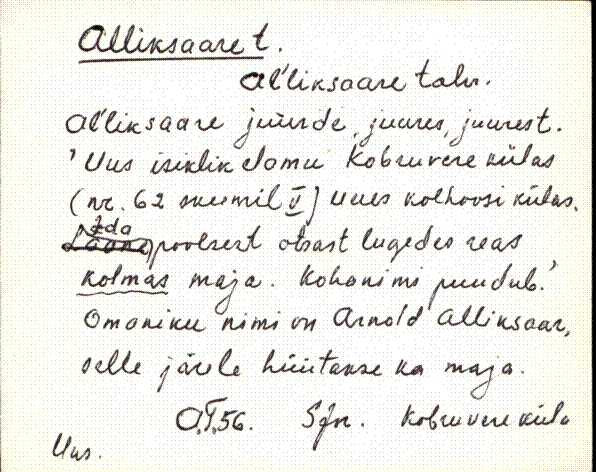 Alliksaare t.
Al'liksaare talu.
Al'liksaare juurde, juures, juurest.
'Uus isiklik elamu Kobruvere külas
(nr. 62 skeemil V) uues kolhoosi külas.
Ida
poolsest otsast lugedes reas
kolmas maja. Kohanimi puudub.'
Omaniku nimi on Arnold Alliksaar,
selle järele hüütakse ka maja.
A.T.56. Sjn. Kobruvere küla
Uus.